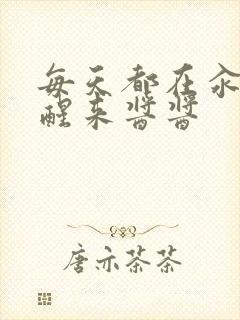 每天都在汆
醒来酱酱
唐亦茶茶